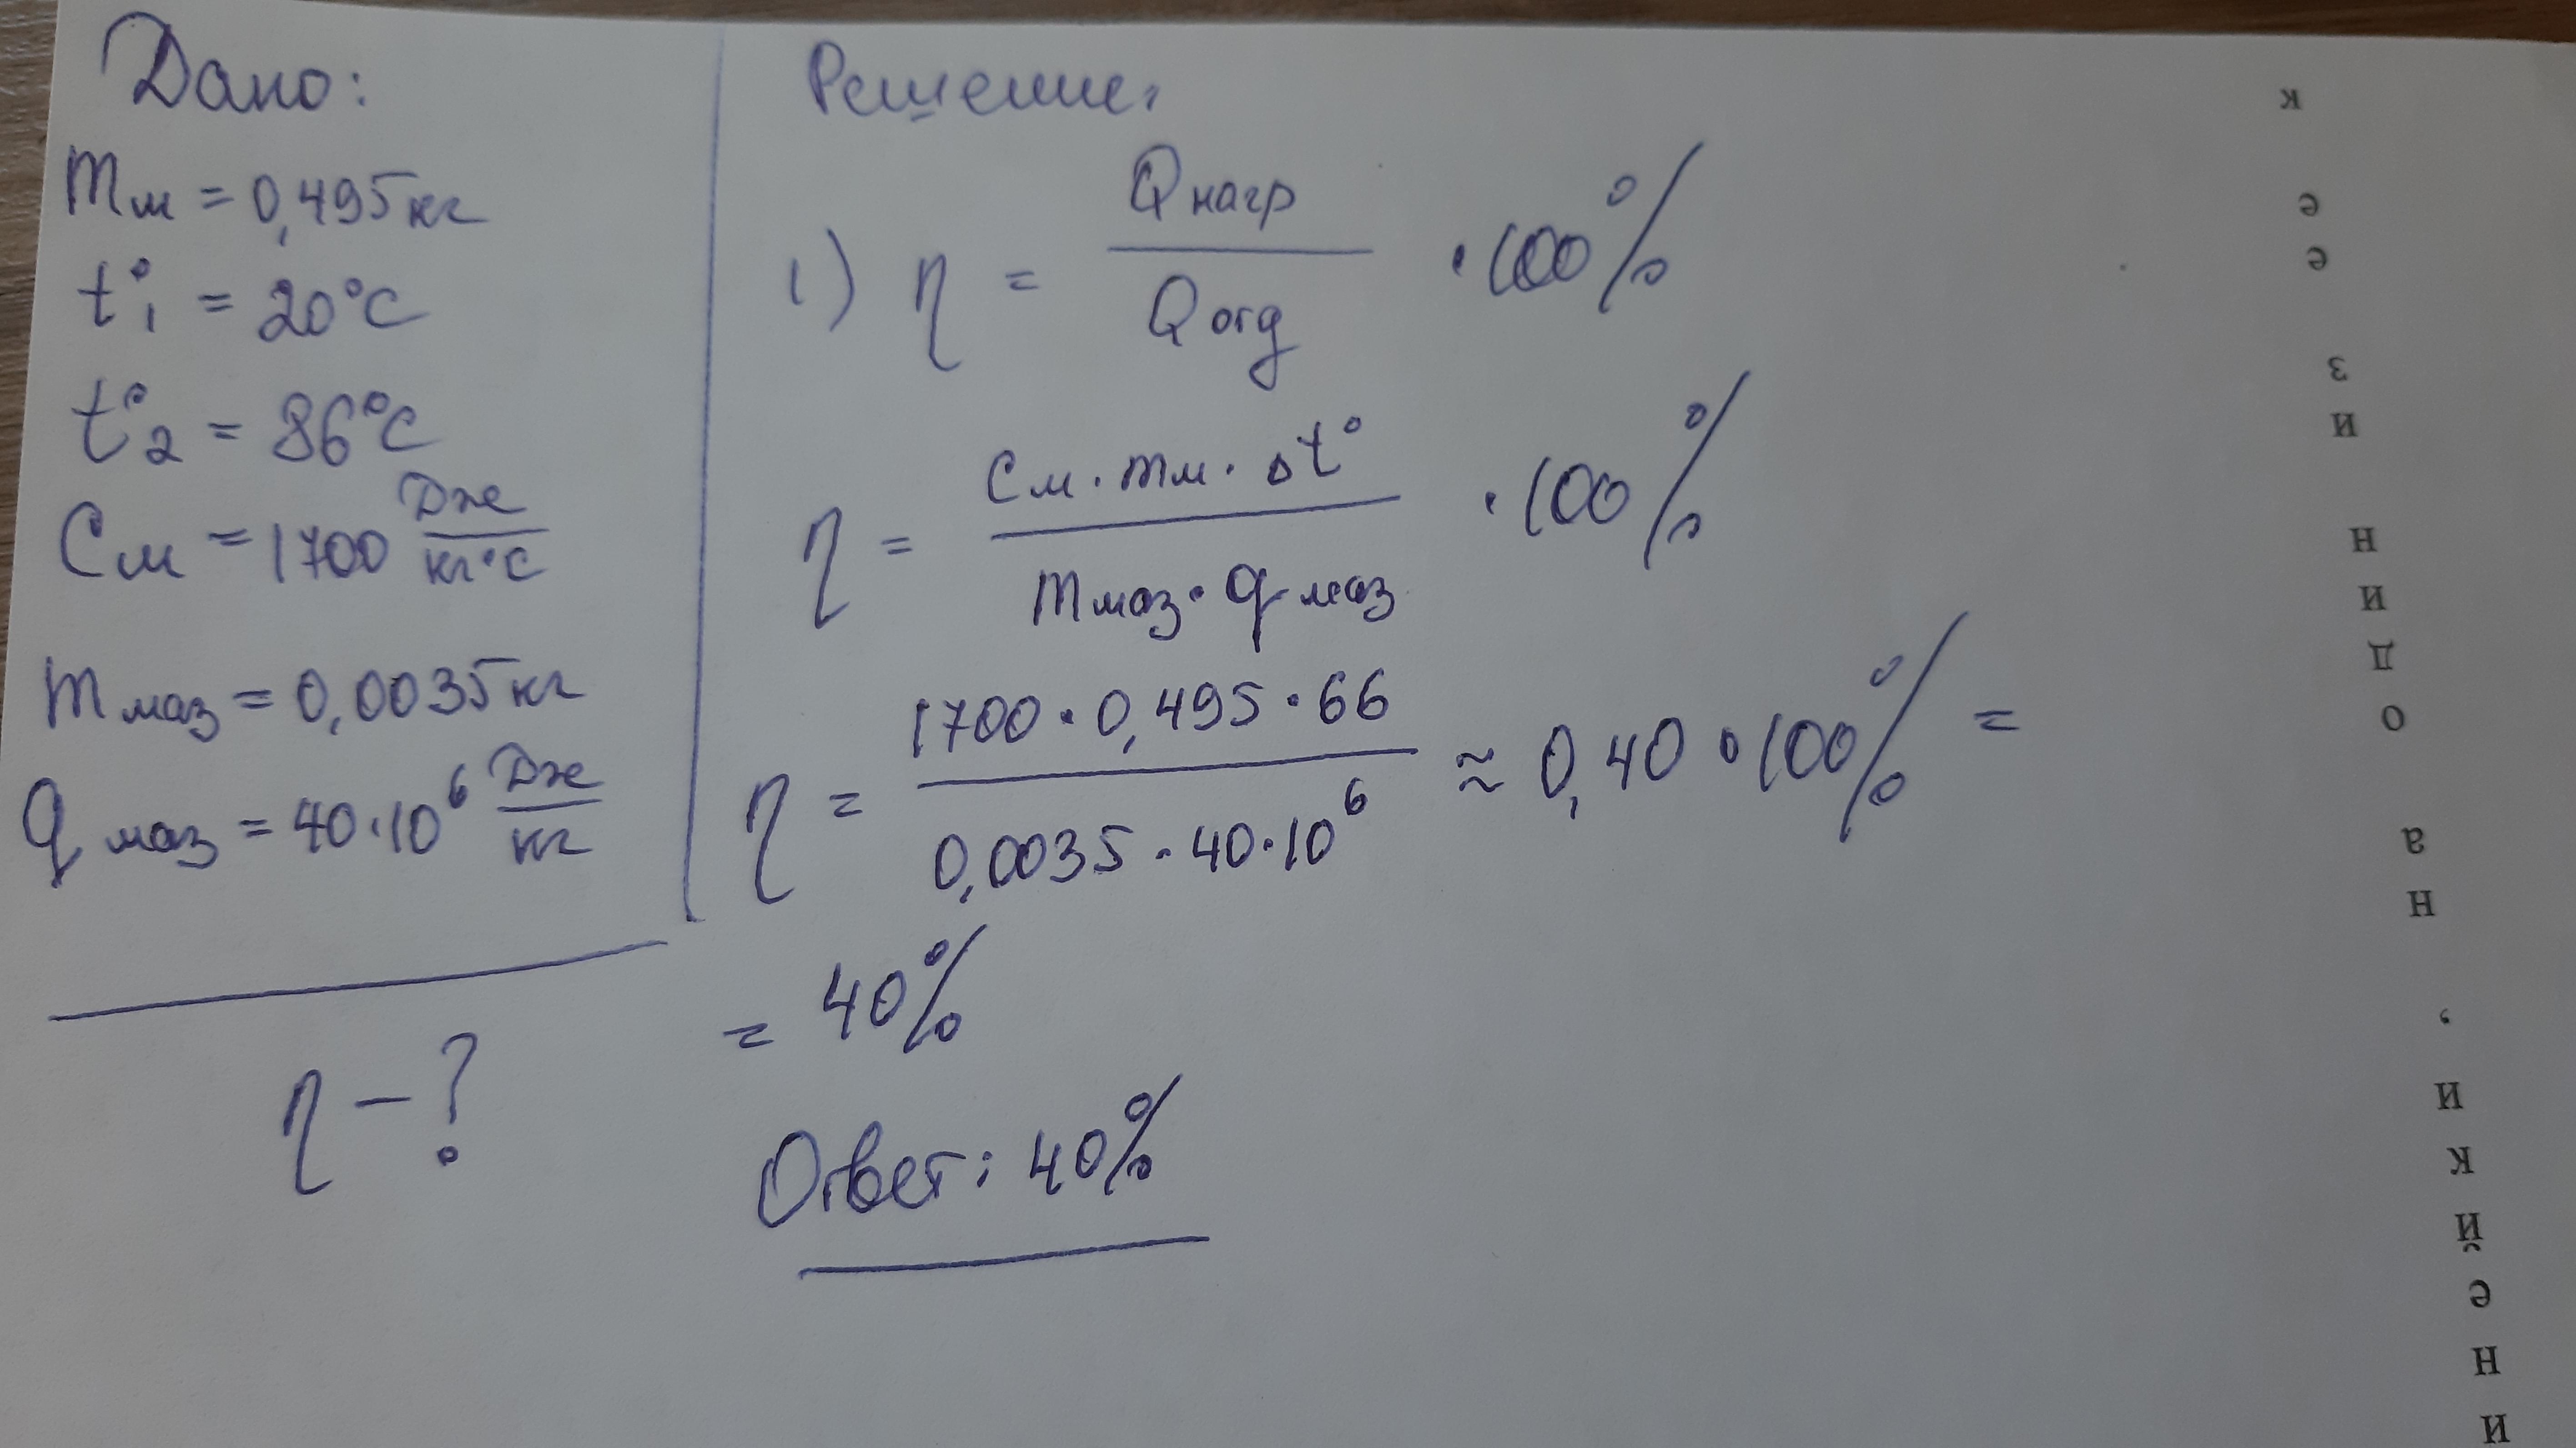 Дано:
mм = 0,495 кг
t°1 = 20°C
t°2 = 86°C
Cм = 1700 Дж/кг°С
mмаз = 0,0035 кг
qмаз = 40·10⁶ Дж/кг
η - ?
Решение:
1) η = Qнагр/Qотд · 100%
η = Cм · mм · Δt°/mмаз · qмаз · 100%
η = 1700 · 0,495 · 66/0,0035 · 40·10⁶ ≈ 0,40 · 100% =
= 40%
Ответ: 40%
к ее зи нидо на н, икйени